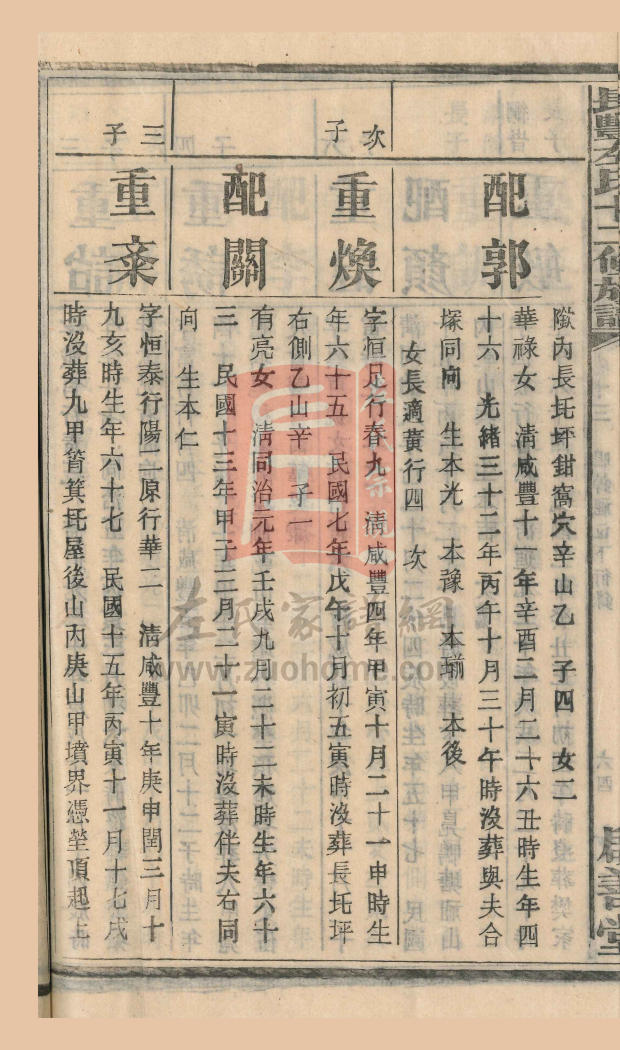 隞內長坵坪鉗窩穴辛山乙 子四 女二
配郭
華祿女 清咸豐十一年辛酉二月二十六丑時生年四
十六 光緒三十二年丙午十月三十午時沒葬與夫合
塚同向 生本光 本豫 本瑞 本後
女長適黃行四 次
次子
重煥
字恒足行春九 清咸豐四年甲寅十月二十一申時生
年六十五 民國七年戊午十月初五寅時沒葬長坵坪
右側乙山辛 子一
配關
有亮女 清同治元年壬戌九月二十二未時生年六十
三 民國十三年甲子二月二十一寅時沒葬伴夫右同
向 生本仁
三子
重桼
字恒泰行陽二原行華二 清咸豐十年庚申閏三月十
九亥時生年六十七 民國十五年丙寅十一月十七戌
時沒葬九甲筲箕坵屋後山內庚山甲墳界憑塋頂起上
左氏家譜網
www.zuohome.com